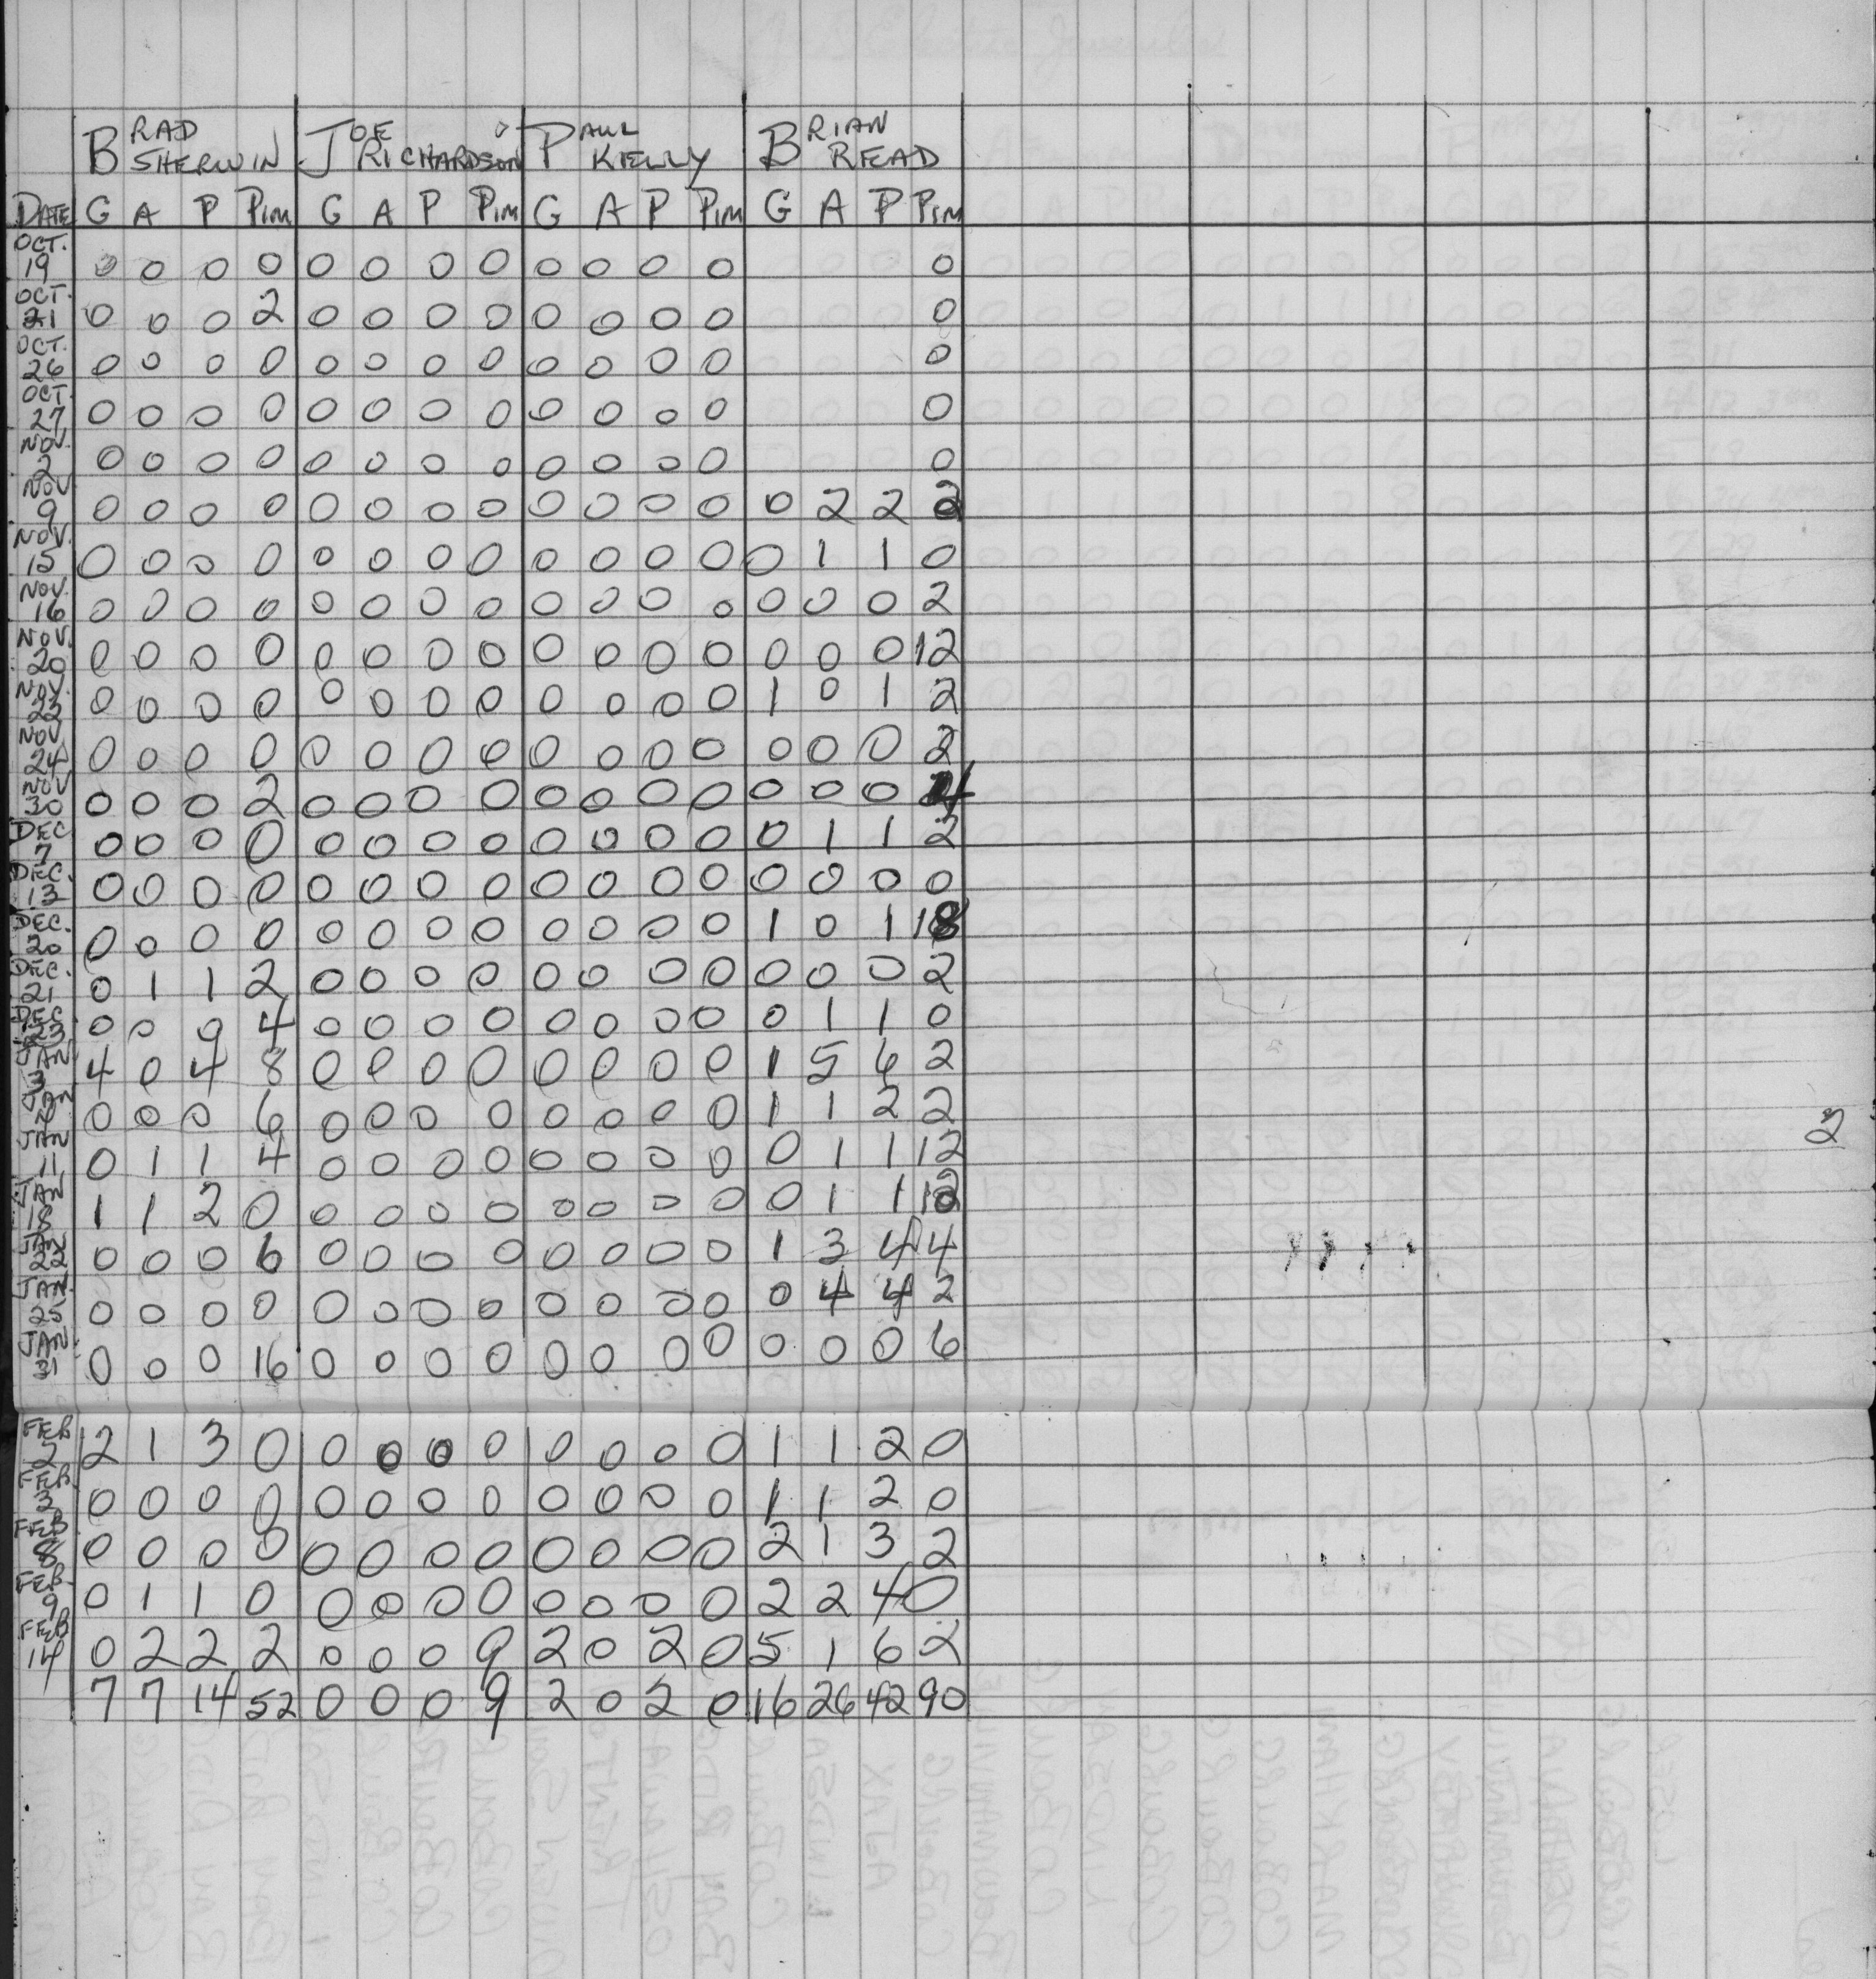 BRAD SHERWIN JOE RICHARDSON PAUL KELLY BRIAN READ
DATE G A P PIM G A P PIM G A P PIM G A P PIM
OCT. 19 0 0 0 0 0 0 0 0 0 0 0 0 0
OCT. 21 0 0 0 2 0 0 0 0 0 0 0 0 0
OCT. 26 0 0 0 0 0 0 0 0 0 0 0 0 0
OCT. 27 0 0 0 0 0 0 0 0 0 0 0 0 0
NOV. 2 0 0 0 0 0 0 0 0 0 0 0 0 0
NOV 9 0 0 0 0 0 0 0 0 0 0 0 0 0 2 2 2
NOV. 15 0 0 0 0 0 0 0 0 0 0 0 0 0 1 1 0
NOV. 16 0 0 0 0 0 0 0 0 0 0 0 0 0 0 0 2
NOV. 20 0 0 0 0 0 0 0 0 0 0 0 0 0 0 0 12
NOV. 22 0 0 0 0 0 0 0 0 0 0 0 0 1 0 1 2
NOV. 24 0 0 0 0 0 0 0 0 0 0 0 0 0 0 0 2
NOV 30 0 0 0 2 0 0 0 0 0 0 0 0 0 0 0 4
DEC 7 0 0 0 0 0 0 0 0 0 0 0 0 0 1 1 2
DEC. 13 0 0 0 0 0 0 0 0 0 0 0 0 0 0 0 0
DEC. 20 0 0 0 0 0 0 0 0 0 0 0 0 1 0 1 18
DEC. 21 0 1 1 2 0 0 0 0 0 0 0 0 0 0 0 2
DEC 23 0 0 0 4 0 0 0 0 0 0 0 0 0 1 1 0
JAN 3 4 0 4 8 0 0 0 0 0 0 0 0 1 5 6 2
JAN 0 0 0 6 0 0 0 0 0 0 0 0 1 1 2 2
2
JAN 11 0 1 1 4 0 0 0 0 0 0 0 0 0 1 1 12
JAN 18 1 1 2 0 0 0 0 0 0 0 0 0 0 1 1
JAN 22 0 0 0 6 0 0 0 0 0 0 0 0 1 3 4 4
JAN. 25 0 0 0 0 0 0 0 0 0 0 0 0 0 4 4 2
JAN. 31 0 0 0 16 0 0 0 0 0 0 0 0 0 0 0 6
FEB 2 2 1 3 0 0 0 0 0 0 0 0 0 1 1 2 0
FEB 3 0 0 0 0 0 0 0 0 0 0 0 0 1 1 2 0
FEB 8 0 0 0 0 0 0 0 0 0 0 0 0 2 1 3 2
FEB 9 0 1 1 0 0 0 0 0 0 0 0 0 2 2 4 0
FEB 14 0 2 2 2 0 0 0 9 2 0 2 0 5 1 6 2
7 7 14 52 0 0 0 9 2 0 2 0 16 26 42 90